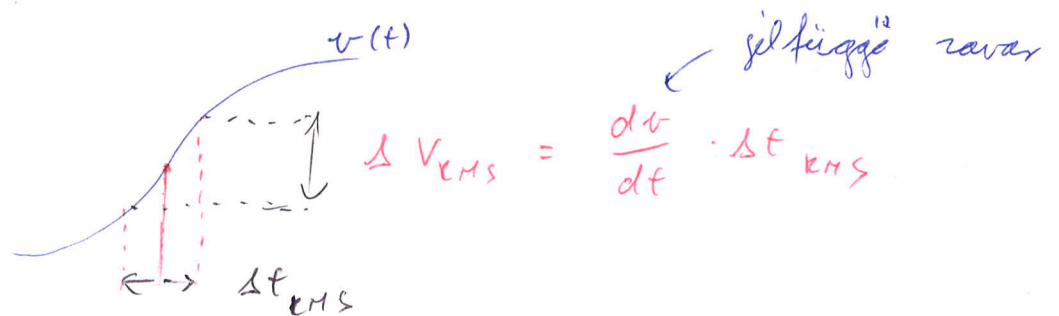 v(t)
jelfüggő zavar
Δ V_RMS = dv/dt · Δt_RMS
Δt_RMS